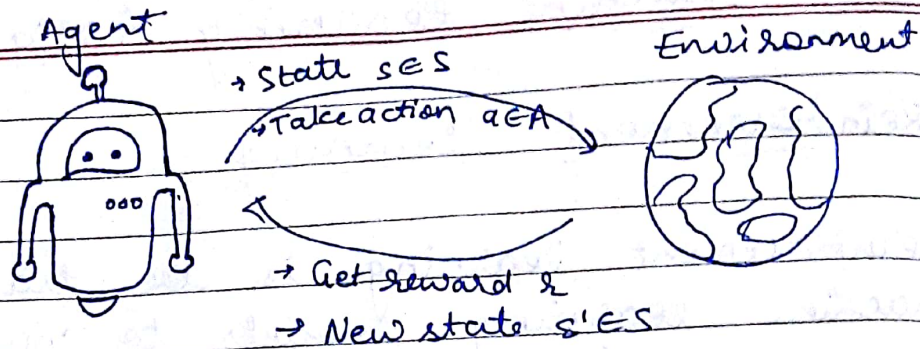 Agent
Environment
→ State s∈S
→ Take action a∈A
→ Get reward r
→ New state s'∈S